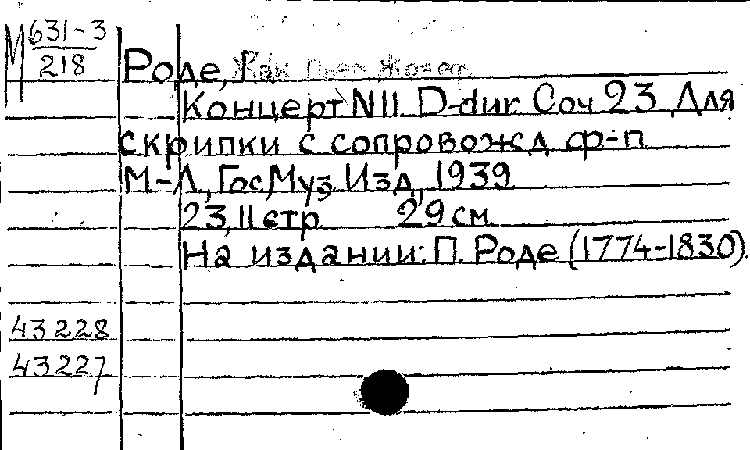 М 631-3
218
Роде, Жак Пьер Жозеф
Концерт N11 D-dur Соч 23 Для
скрипки с сопровожд ф-п
М-Л, Гос, Муз, Изд, 1939
23, 11 стр 29 см
На издании: П. Роде (1774-1830).
43228
43227